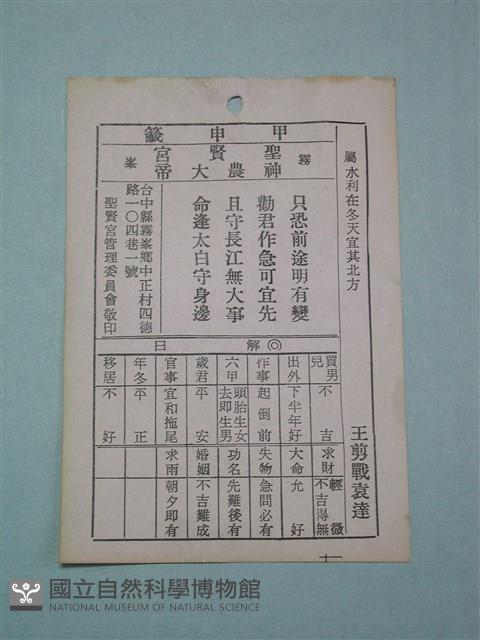 屬水利在冬天宜其北方
王剪戰袁達
甲申籤
霧峯
聖賢宮
神農大帝
只恐前途明有變
勸君作急可宜先
且守長江無大事
命逢太白守身邊
台中縣霧峯鄉中正村四德
路一〇四巷一號
聖賢宮管理委員會敬印
◎解曰
買男兒 不吉
求財 輕微不吉得無
出外 下半年好
大命 允好
作事 起倒前
失物 急問必有
六甲 頭胎生女去即生男
功名 先難後有
歲君 平安
婚姻 不吉難成
官事 宜和拖尾
求雨 朝夕即有
年冬 平正
移居 不好
國立自然科學博物館
NATIONAL MUSEUM OF NATURAL SCIENCE